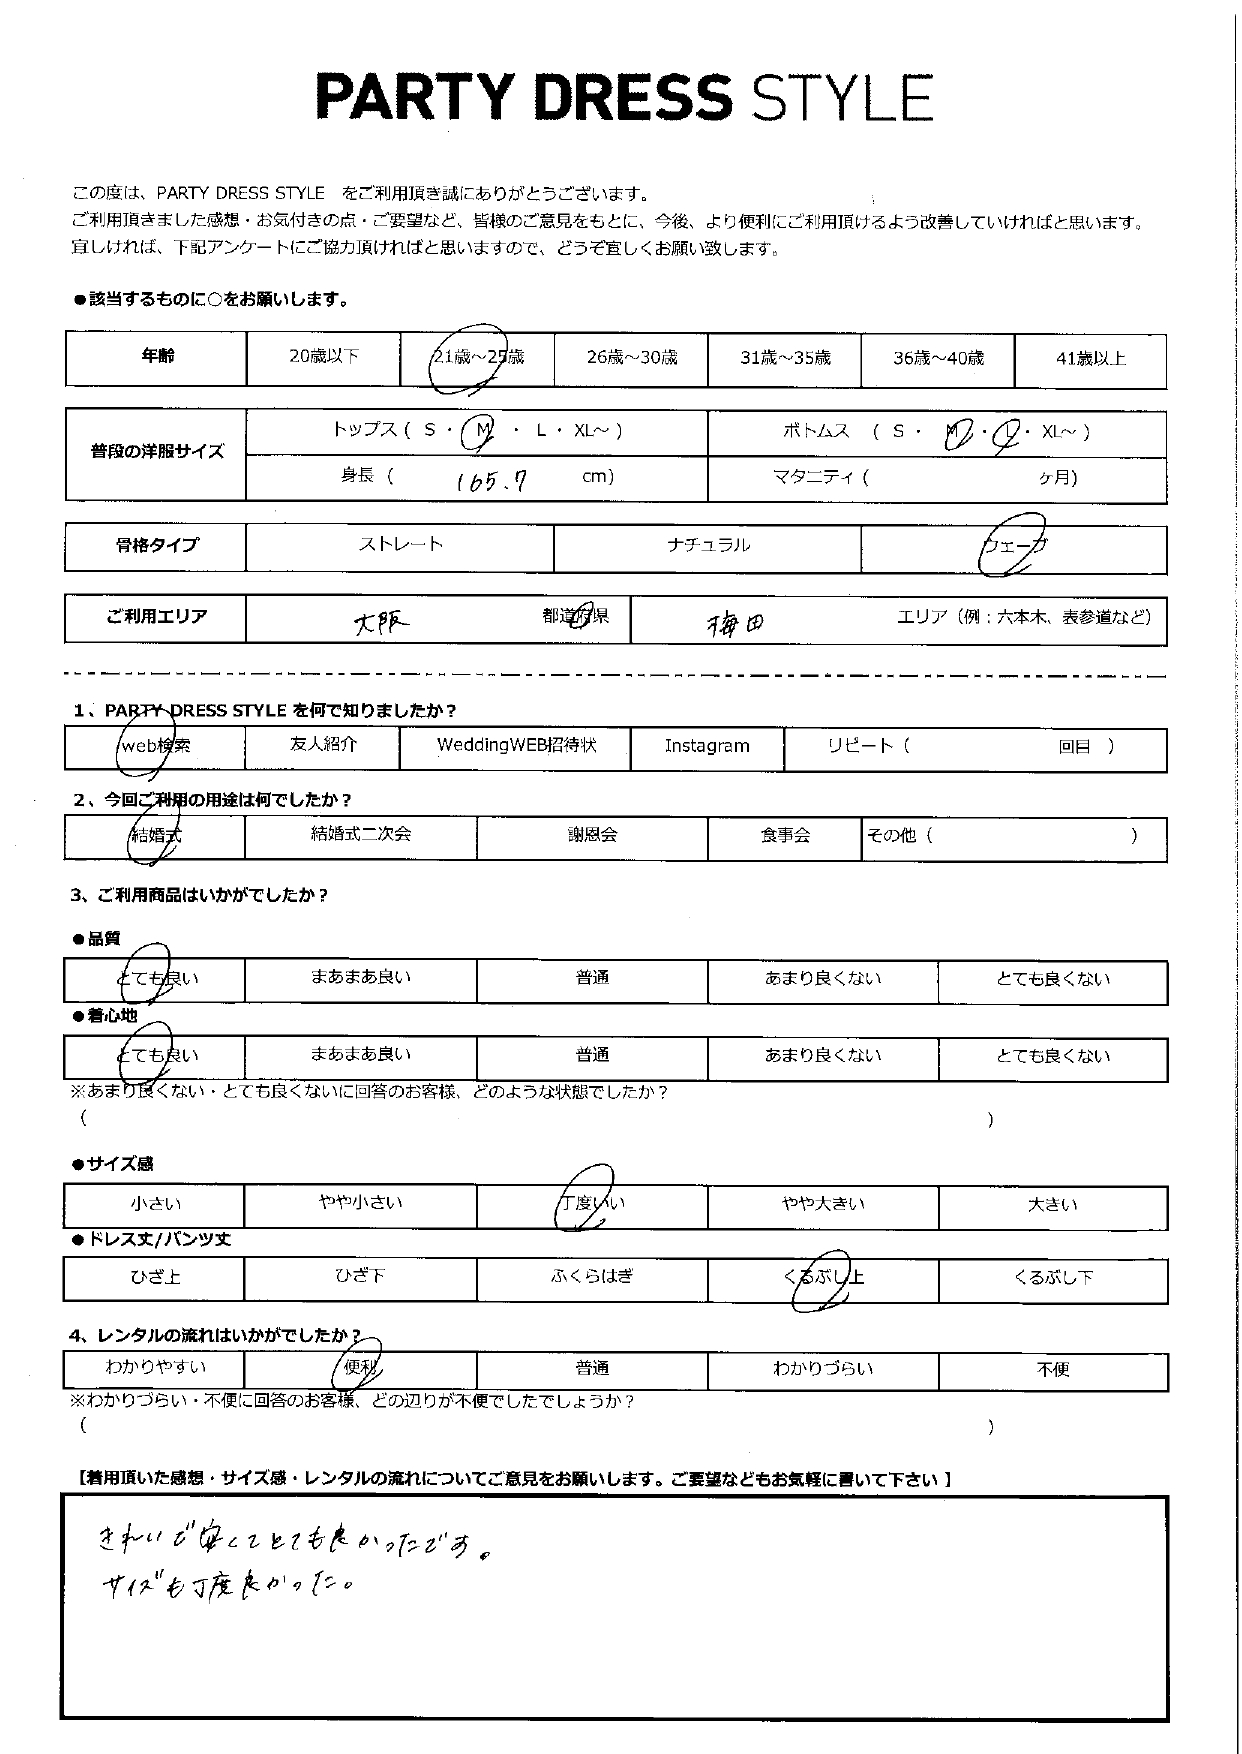 PARTY DRESS STYLE
この度は、PARTY DRESS STYLE をご利用頂き誠にありがとうございます。
ご利用頂きました感想・お気付きの点・ご要望など、皆様のご意見をもとに、今後、より便利にご利用頂けるよう改善していければと思います。
宜しければ、下記アンケートにご協力頂ければと思いますので、どうぞ宜しくお願い致します。
●該当するものに○をお願いします。
年齢 20歳以下 21歳～25歳 26歳～30歳 31歳～35歳 36歳～40歳 41歳以上
普段の洋服サイズ トップス ( S ・ M ・ L ・ XL～ ) ボトムス ( S ・ M ・ L ・ XL～ )
身長 ( 165.7 cm) マタニティ ( ヶ月)
骨格タイプ ストレート ナチュラル ウェーブ
ご利用エリア 大阪 都道府県 梅田 エリア（例：六本木、表参道など）
1、PARTY DRESS STYLE を何で知りましたか？
web検索 友人紹介 WeddingWEB招待状 Instagram リピート ( 回目 )
2、今回ご利用の用途は何でしたか？
結婚式 結婚式二次会 謝恩会 食事会 その他 ( )
3、ご利用商品はいかがでしたか？
●品質
とても良い まあまあ良い 普通 あまり良くない とても良くない
●着心地
とても良い まあまあ良い 普通 あまり良くない とても良くない
※あまり良くない・とても良くないに回答のお客様、どのような状態でしたか？
( )
●サイズ感
小さい やや小さい 丁度いい やや大きい 大きい
●ドレス丈/パンツ丈
ひざ上 ひざ下 ふくらはぎ くるぶし上 くるぶし下
4、レンタルの流れはいかがでしたか？
わかりやすい 便利 普通 わかりづらい 不便
※わかりづらい・不便に回答のお客様、どの辺りが不便でしたでしょうか？
( )
【着用頂いた感想・サイズ感・レンタルの流れについてご意見をお願いします。ご要望などもお気軽に書いて下さい 】
きれいで安くてとても良かったです。
サイズも丁度良かった。